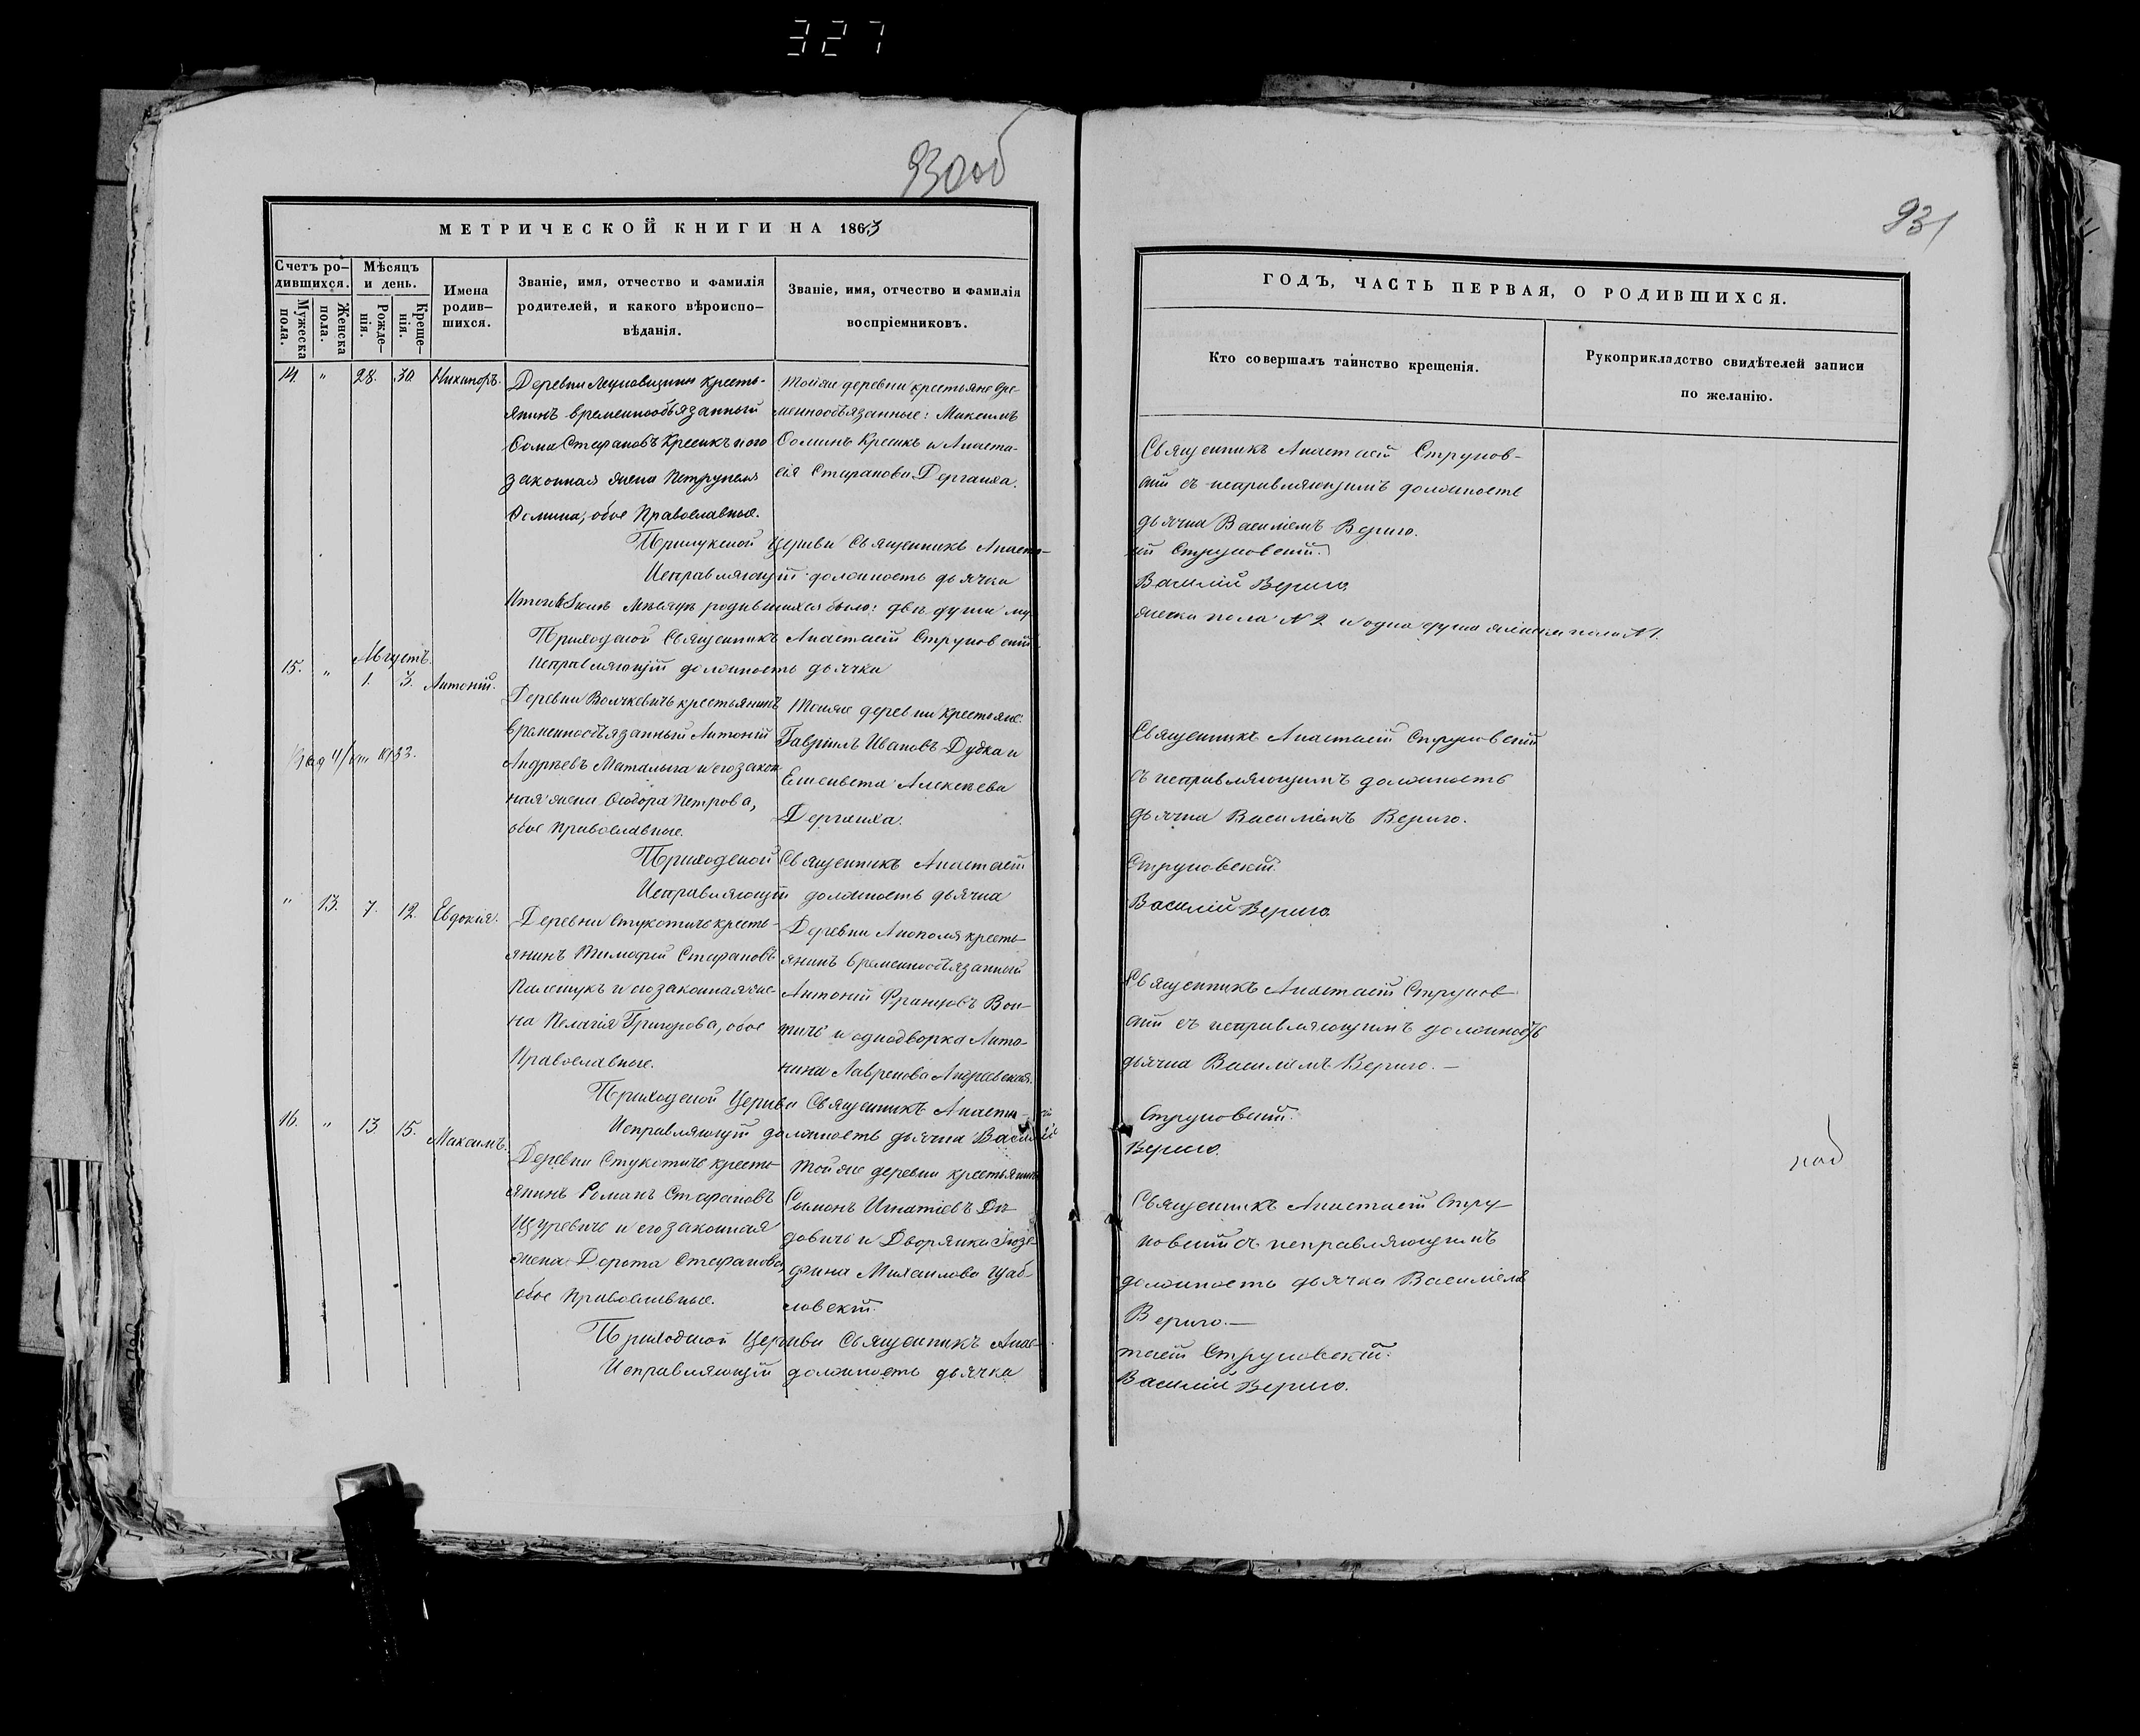 327
930об
МЕТРИЧЕСКОЙ КНИГИ НА 1863
Счетъ ро-
дившихся.
Мужеска
пола.
Женска
пола.
Мѣсяцъ
и день.
Рожде-
нія.
Креще-
нія.
Имена
родив-
шихся.
Званіе, имя, отчество и фамилія
родителей, и какого вѣроиспо-
вѣданія.
Званіе, имя, отчество и фамилія
воспріемниковъ.
14. " 28. 30. Никифоръ.
Деревни кресть-
янинъ временнообязанный
Ѳома Стефановъ Кресикъ и его
законная жена Петрунеля
Ѳомина, обое Православные.
Тойже деревни крестьяне вре-
меннообязанные: Максимъ
Ѳоминъ Кресикъ и Анаста-
сія Стефанова Дергаиха.
Церкви Священникъ Анаста-
Исправляющій должность дьячка
родившихся было: двѣ души му-
Приходской Священникъ Анастасій Струковскій
Исправляющій должность дьячка
Августъ.
15. " 1. 3. Антоній.
Деревни Волчкевичъ крестьянинъ
временнообязанный Антоній
Андреевъ Маталыга и его закон-
ная жена Ѳеодора Петрова,
обое Православные.
Тойже деревни крестьяне:
Гавріилъ Ивановъ Дудка и
Елисавета Алексѣева
Дергаиха.
1933.
Приходской Священникъ Анастасій
Исправляющій должность дьячка
" 13. 7. 12. Евдокія.
Деревни Стукотичь кресть-
янинъ Тимофей Стефановъ
Полещукъ и его законная же-
на Пелагія Григорова, обое
Православные.
Деревни Анополя кресть-
янинъ временнообязанный
Антоній Францовъ Вой-
тичь и однодворка Анто-
нина Лавренова Андреевская.
Приходской Церкви Священникъ Анаста-
Исправляющій должность дьячка Василій
16. " 13 15. Максимъ.
Деревни Стукотичь кресть-
янинъ Романъ Стефановъ
Щуревичь и его законная
жена Дорота Стефанова
обое Православные.
Той же деревни крестьянинъ
Симонъ Игнатіевъ Дѣ-
довичь и Дворянка Іозе-
фина Михаилова Шаб-
ловскій.
Приходской Церкви Священникъ Анас-
Исправляющій должность дьячка
931
ГОДЪ, ЧАСТЬ ПЕРВАЯ, О РОДИВШИХСЯ.
Кто совершалъ таинство крещенія.
Рукоприкладство свидѣтелей записи
по желанію.
Священникъ Анастасій Струков-
скій съ исправляющимъ должность
дьячка Василіемъ Вериго.
ій Струковскій.
Василій Вериго
жеска пола N 2 и одна душа женска пола N 1.
Священникъ Анастасій Струковскій
съ исправляющимъ должность
дьячка Василіемъ Вериго.
Струковскій.
Василій Вериго
Священникъ Анастасій Струков-
скій съ исправляющимъ должность
дьячка Василіемъ Вериго. —
Струковскій.
Вериго.
Священникъ Анастасій Стру-
ковскій съ исправляющимъ
должность дьячка Василіемъ
Вериго. —
тасій Струковскій.
Василій Вериго.